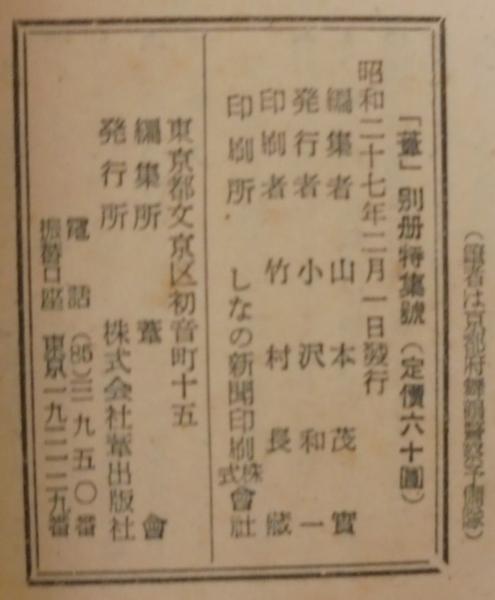 （筆者は京都府舞鶴警察予備隊）
「葦」別册特集號（定價六十圓）
昭和二十七年二月一日發行
編集者　山本茂實
発行者　小沢和一
印刷者　竹村長藏
印刷所　しなの新聞印刷株式會社
東京都文京区初音町十五
編集所　葦會
発行所　株式会社葦出版社
電話（85）三九五〇番
振替口座　東京一九二一二九番